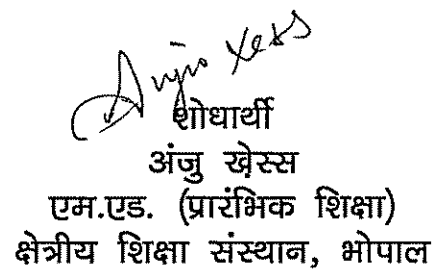 Anju Xess
शोधार्थी
अंजु खेस्स
एम.एड. (प्रारंभिक शिक्षा)
क्षेत्रीय शिक्षा संस्थान, भोपाल